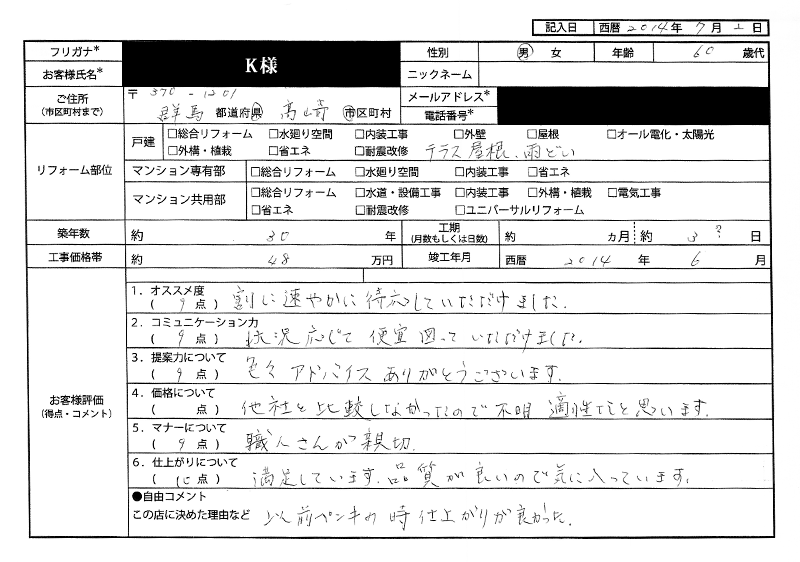 記入日 西暦 2014年 7月 1日
フリガナ* K様 性別 男 女 年齢 60 歳代
お客様氏名* ニックネーム
ご住所 (市区町村まで) 〒370-1201 メールアドレス*
群馬 都道府県 高崎 市区町村 電話番号*
リフォーム部位 戸建 □総合リフォーム □水廻り空間 □内装工事 □外壁 □屋根 □オール電化・太陽光
□外構・植栽 □省エネ □耐震改修 テラス屋根、雨どい
マンション専有部 □総合リフォーム □水廻り空間 □内装工事 □省エネ
マンション共用部 □総合リフォーム □水道・設備工事 □内装工事 □外構・植栽 □電気工事
□省エネ □耐震改修 □ユニバーサルリフォーム
築年数 約 30 年 工期 (月数もしくは日数) 約 ヵ月 約 3? 日
工事価格帯 約 48 万円 竣工年月 西暦 2014 年 6 月
お客様評価 (得点・コメント)
1．オススメ度
( 9 点 ) 割に速やかに待応していただけました.
2．コミュニケーション力
( 9 点 ) 状況応じて便宜図っていただけました.
3．提案力について
( 9 点 ) 色々アドバイスありがとうございます.
4．価格について
( 点 ) 他社と比較しなかったので不明 適性だと思います.
5．マナーについて
( 9 点 ) 職人さんが親切.
6．仕上がりについて
( 10 点 ) 満足しています.品質が良いので気に入っています.
●自由コメント
この店に決めた理由など 以前ペンキの時仕上がりが良かった.